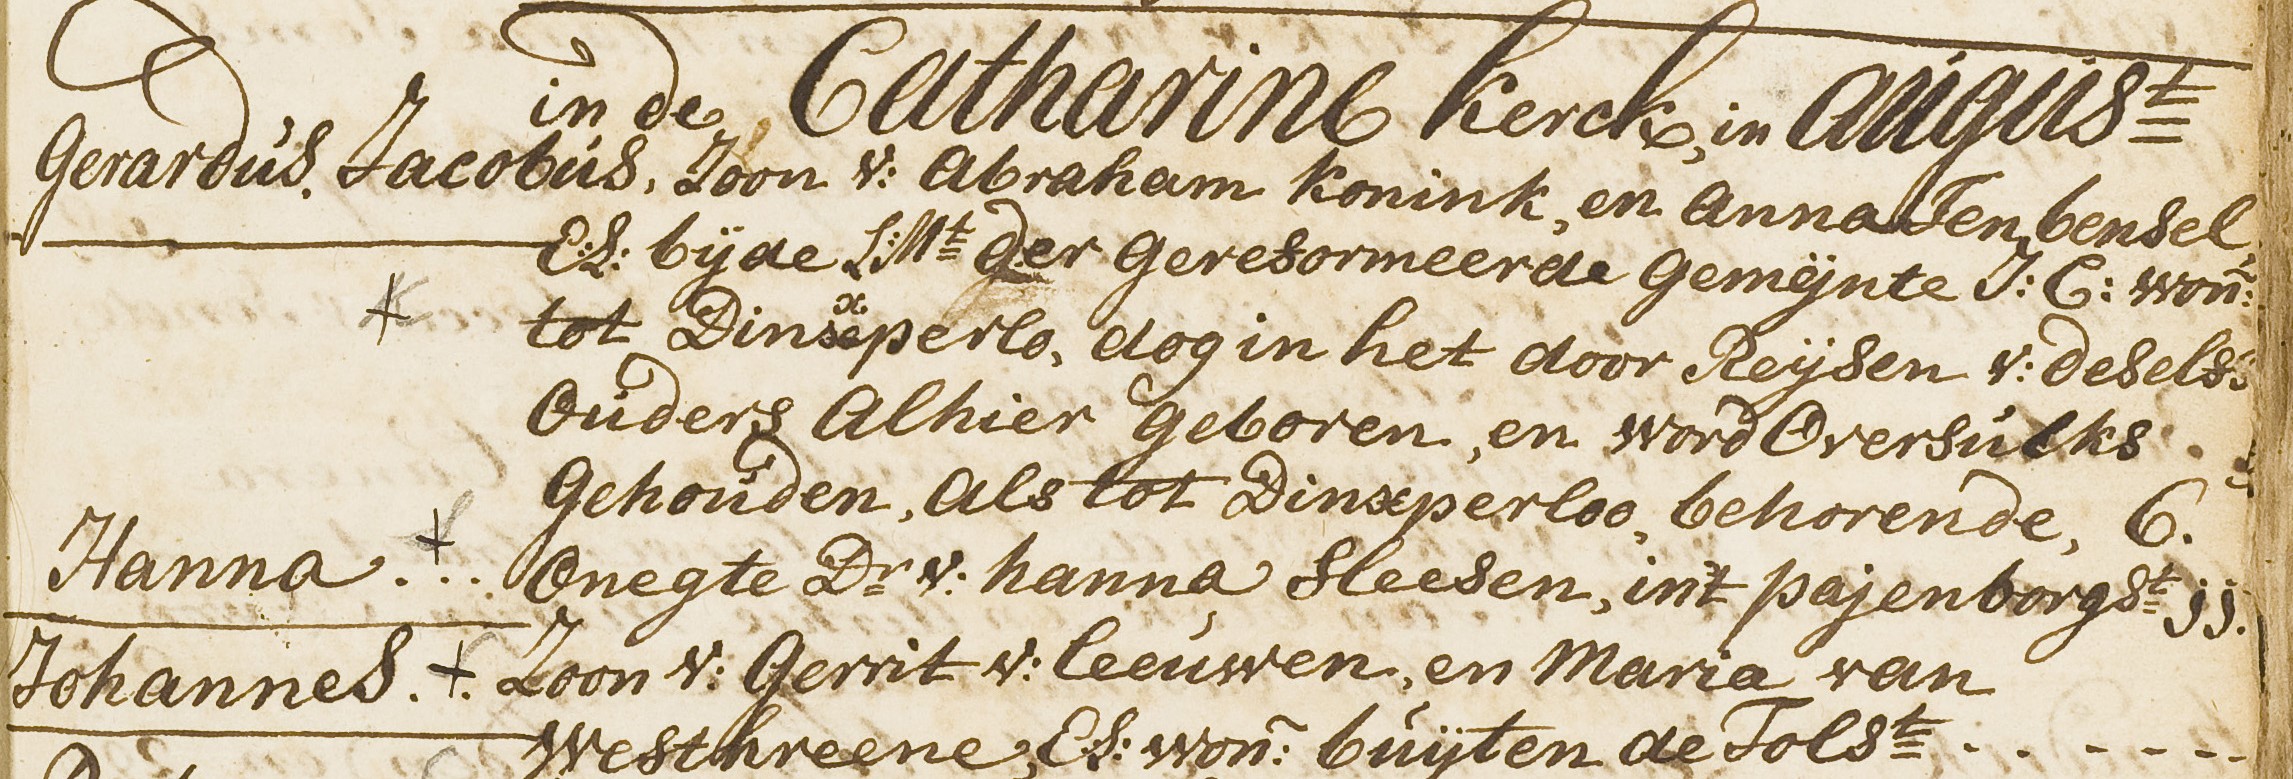 in de Catharine kerck, in august
Gerardus Jacobus. Zoon v: Abraham Konink, en anna Ten bensel,
E:L: bijde L:Mt der Gereformeerde Gemeijnte J: C: won:
tot Dinxperlo, dog in het door Reijsen v: deself:
Ouders Alhier Geboren, en word Oversulks
Gehouden, Als tot Dinxperloo, behorende, 6.
Hanna . . . Onegte Dr v: hanna Sleesen, int pajenborgst jj.
Johannes. + Zoon v: Gerrit v: Leeuwen, en Maria van
Westhreene, EL: won: buijten de Tolst - - - - - -